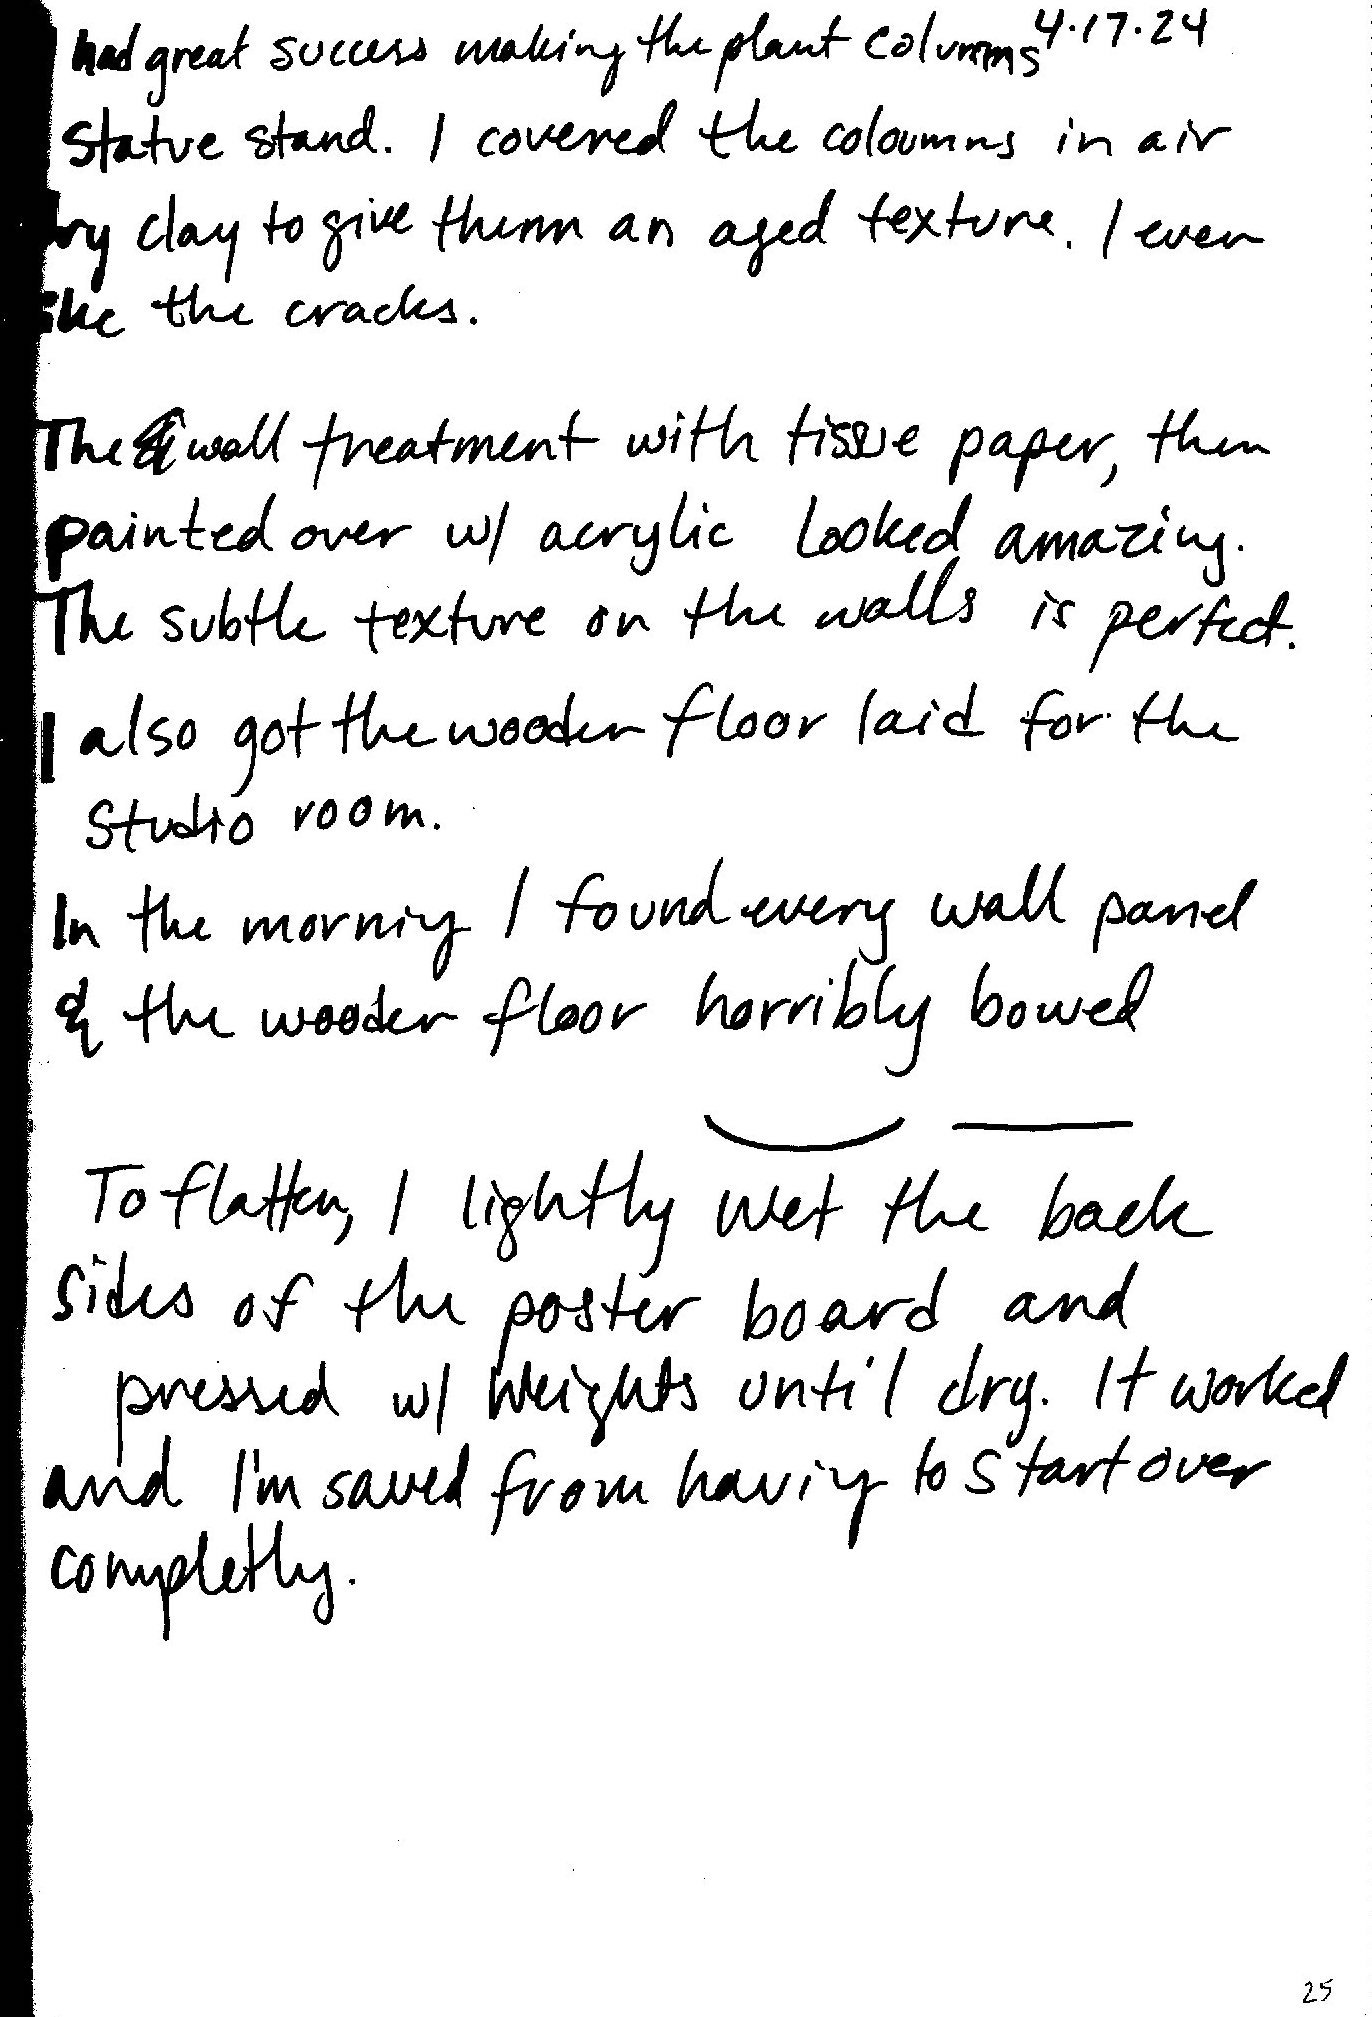 I had great success making the plant columns 4.17.24
Statue stand. I covered the coloumns in air
dry clay to give themm an aged texture. I even
like the cracks.
The & wall treatment with tissue paper, then
painted over w/ acrylic looked amazing.
The subtle texture on the walls is perfect.
I also got the wooden floor laid for the
Studio room.
In the morning I found every wall panel
& the wooden floor horribly bowed
To flatten, I lightly wet the back
sides of the poster board and
pressed w/ weights until dry. It worked
and I'm saved from having to start over
completly.
25